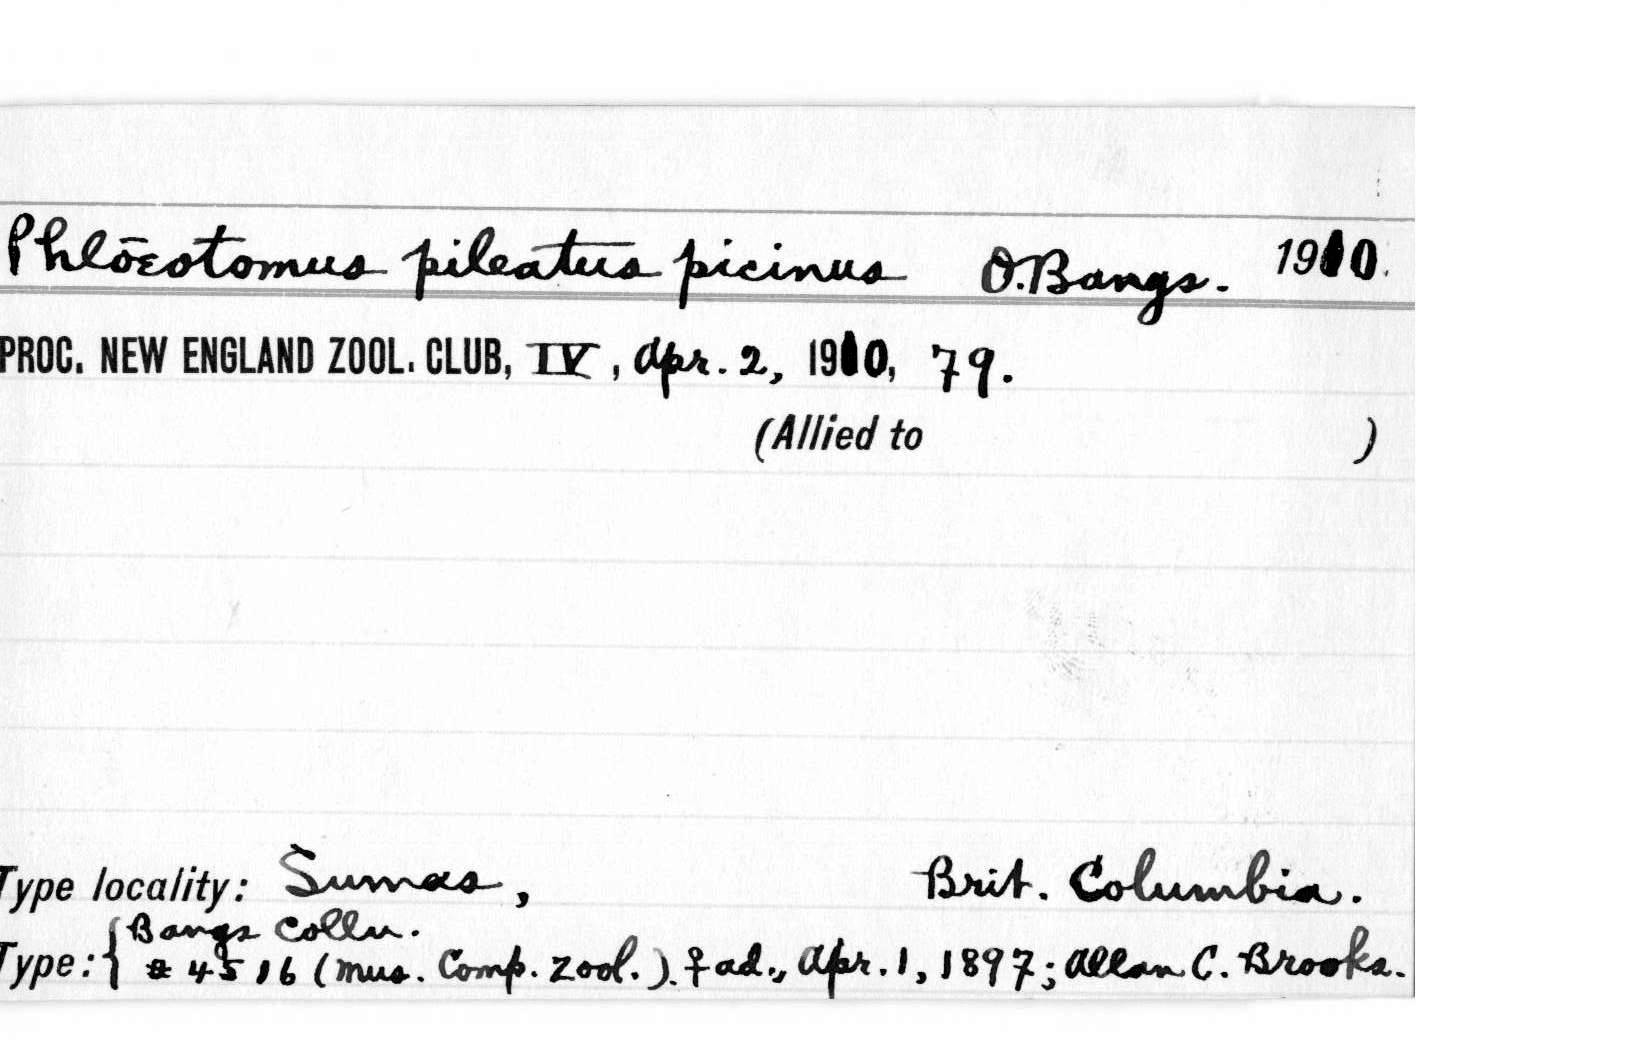 Phlöeotomus pileatus picinus O.Bangs. 1910.
PROC. NEW ENGLAND ZOOL. CLUB, IV, Apr. 2, 1910, 79.
(Allied to )
Type locality: Sumas, Brit. Columbia.
Bangs Colln.
Type: { # 4516 (Mus. Comp. Zool.). ♀ ad., Apr. 1, 1897; Allan C. Brooks.